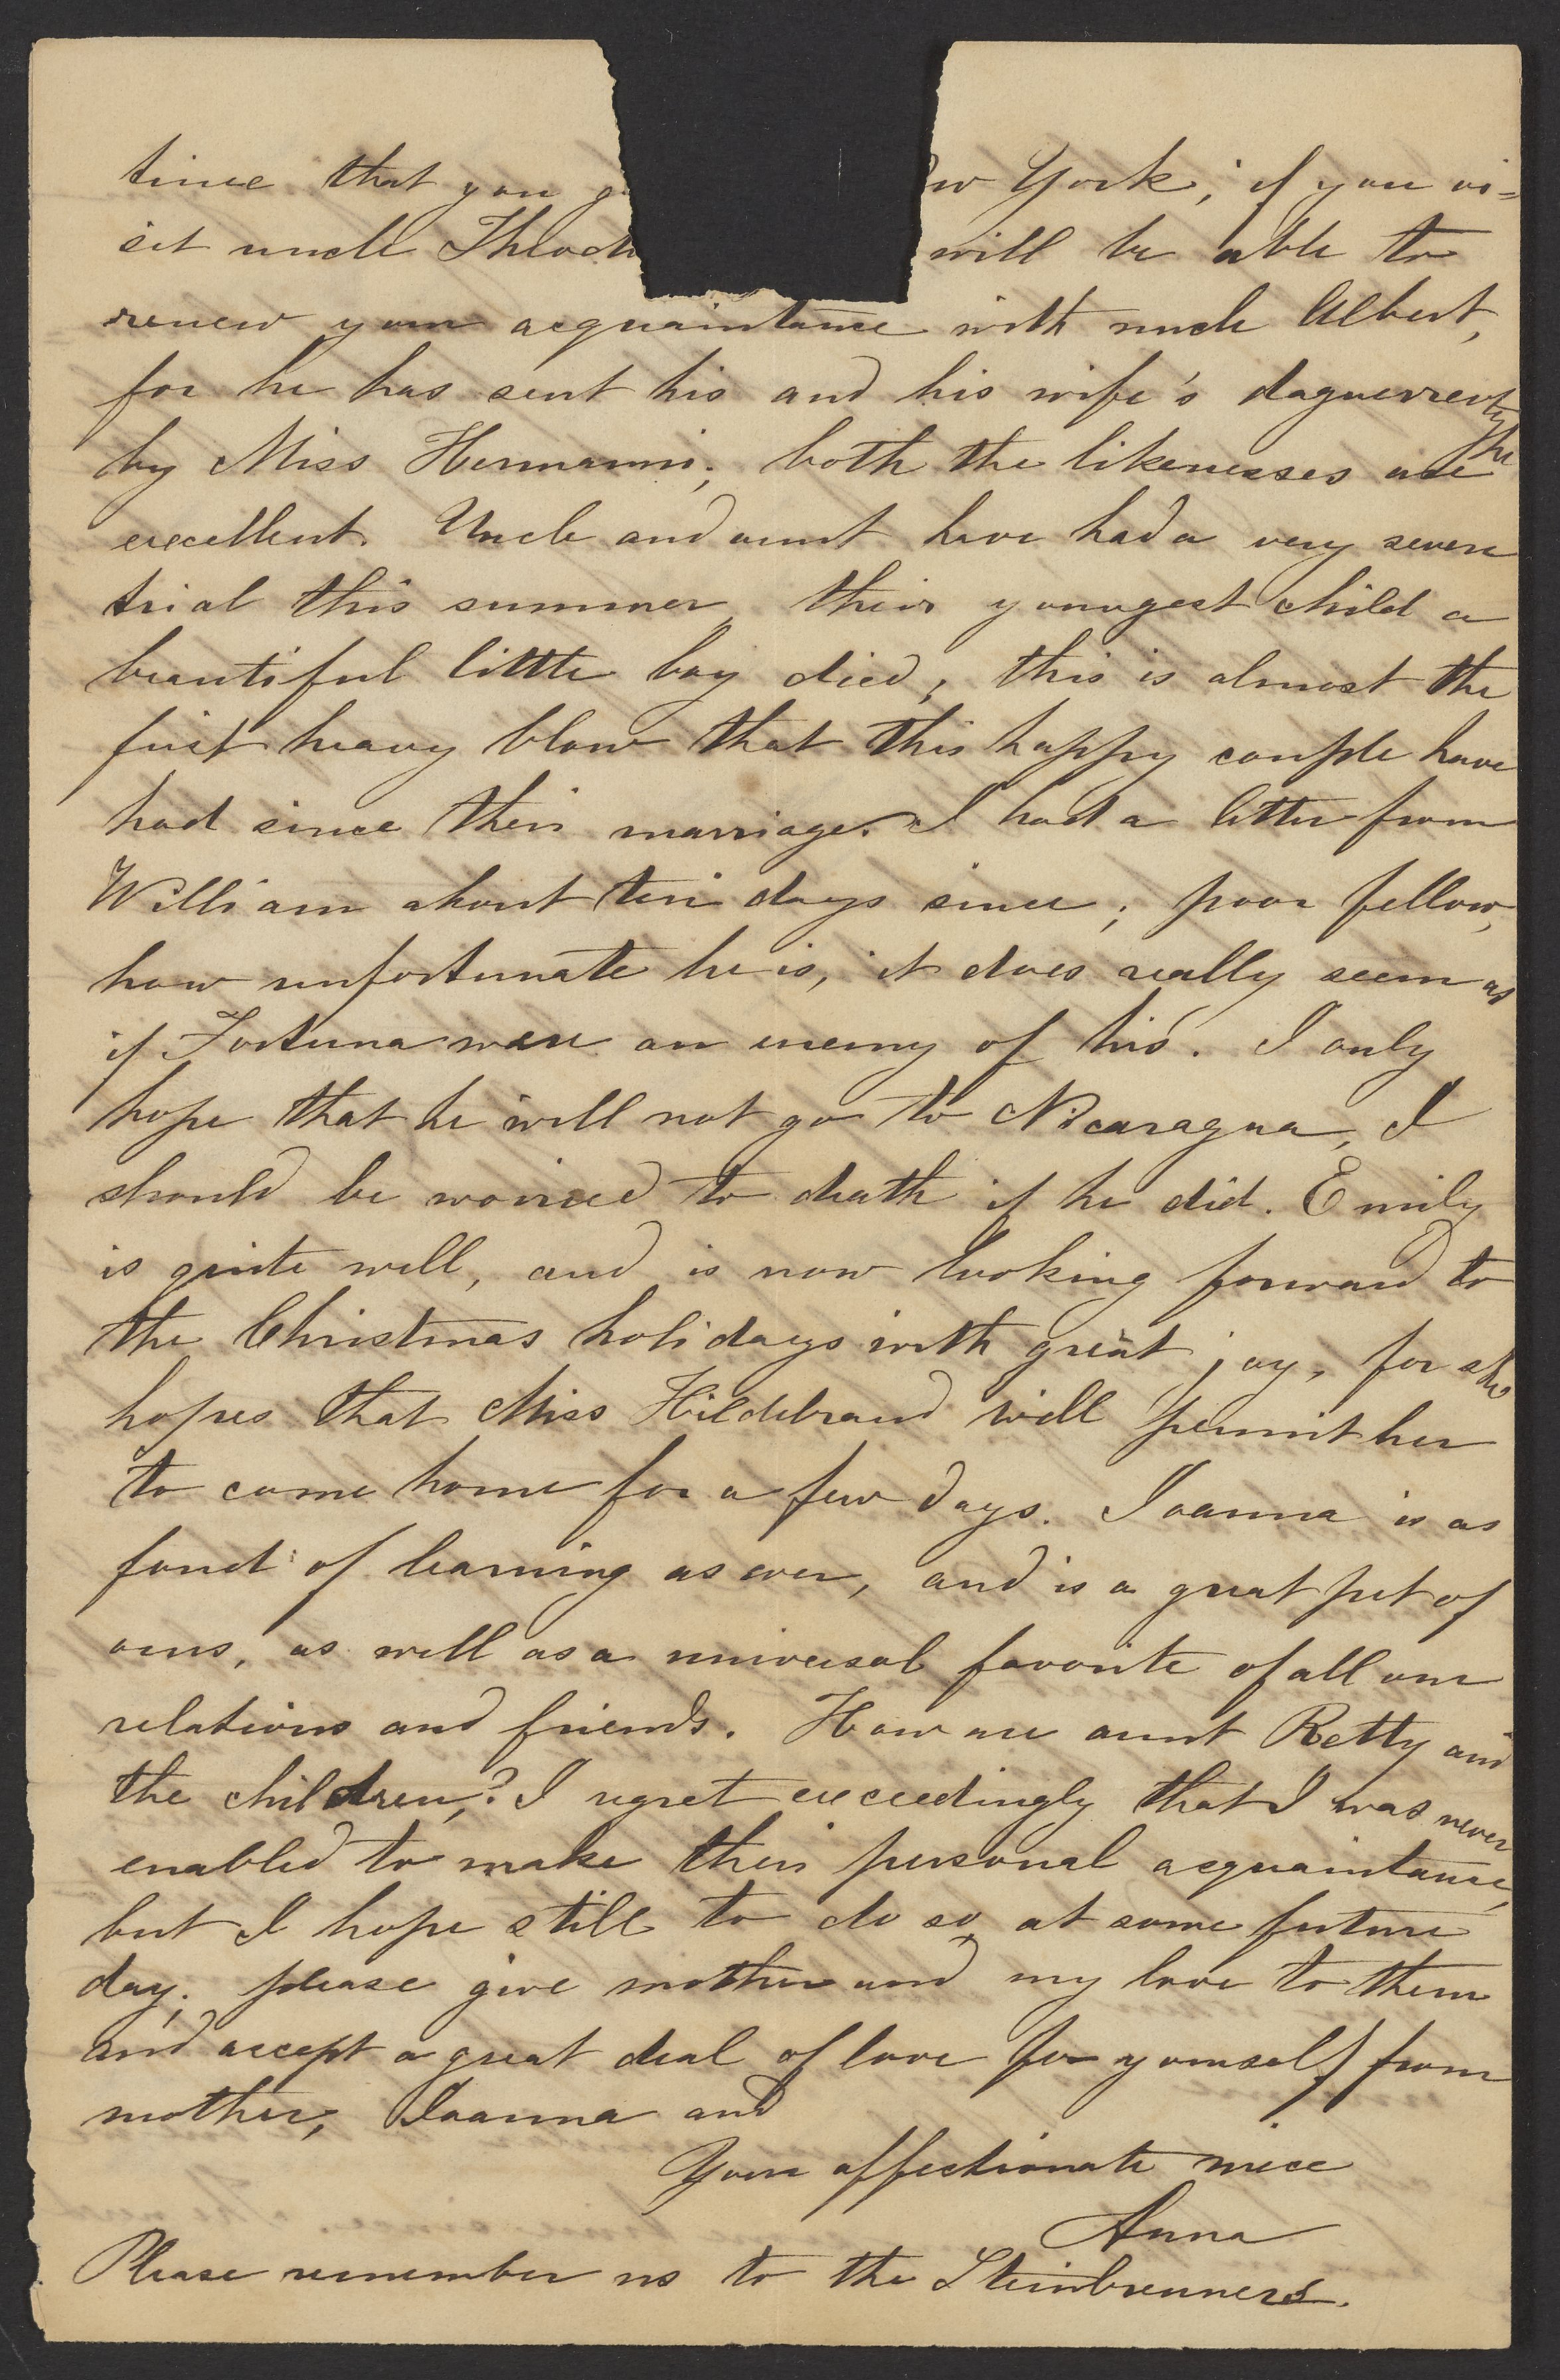 time that you g
w York; if you vi=
sit uncle Theodo
will be able to
renew your acquaintance with uncle Albert,
for he has sent his and his wife's daguerreotype
by Miss Hermanni; both the likenesses are
excellent. Uncle and aunt have had a very severe
trial this summer, their youngest child a
beautiful little boy died; this is almost the
first heavy blow that this happy couple have
had since their marriage. I had a letter from
William about ten days since; poor fellow,
how unfortunate he is, it does really seem as
if Fortuna were an enemy of his. I only
hope that he will not go to Nicaragua, I
should be worried to death if he did. Emily
is quite well, and is now looking forward to
the Christmas holidays with great joy, for she
hopes that Miss Hildebrand will permit her
to come home for a few days. Joanna is as
fond of learning as ever, and is a great pet of
ours, as well as a universal favorite of all our
relations and friends. How are aunt Betty and
the children? I regret exceedingly that I was never
enabled to make their personal acquaintance,
but I hope still to do so at some future
day; please give mother and my love to them
and accept a great deal of love for yourself from
mother, Joanna and
Your affectionate niece
Anna
Please remember us to the Steinbrenners.